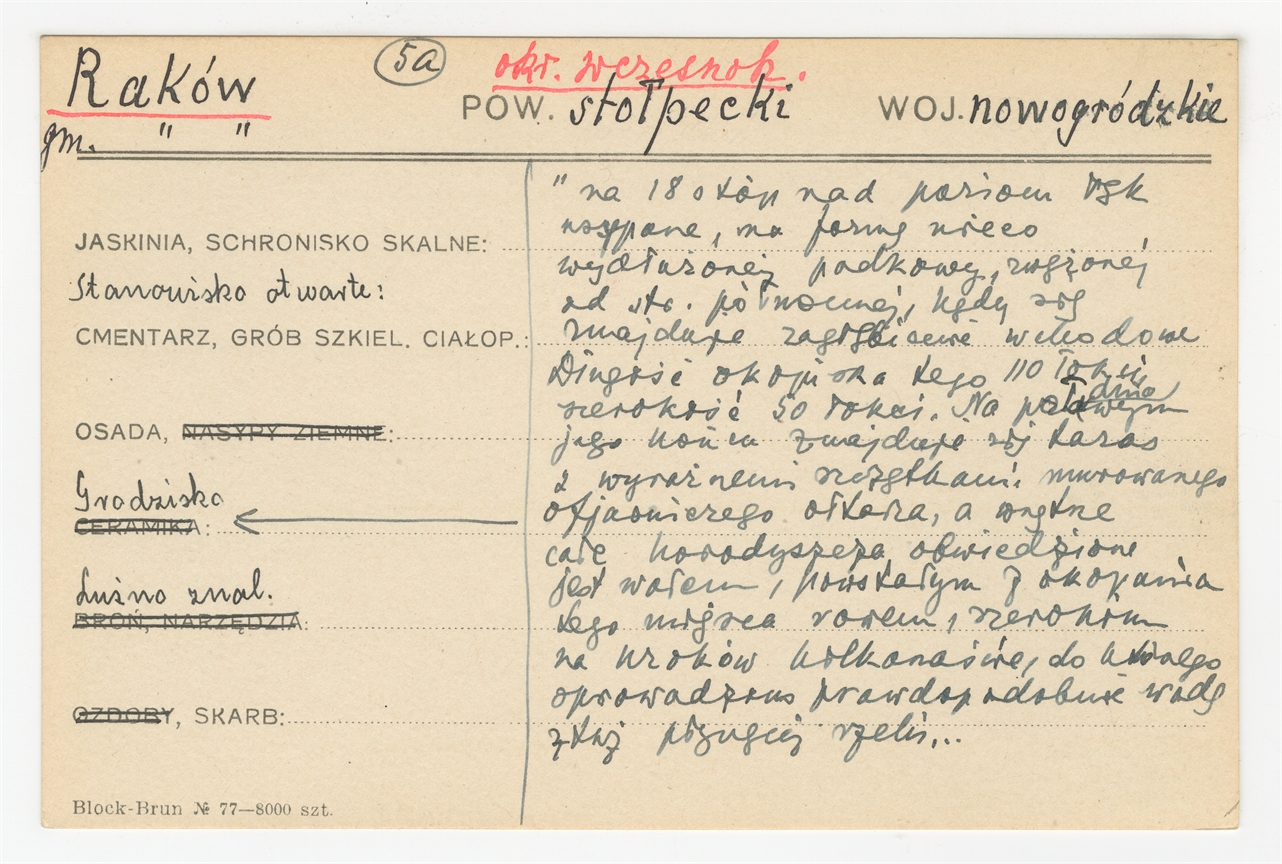 Raków
5a
okr. wczesnok.
POW. stołpecki
WOJ. nowogródzkie
gm. " "
JASKINIA, SCHRONISKO SKALNE:
Stanowisko otwarte:
CMENTARZ, GRÓB SZKIEL. CIAŁOP.:
OSADA, NASYPY ZIEMNE:
Grodzisko
CERAMIKA:
Luźno znal.
BROŃ, NARZĘDZIA:
OZDOBY, SKARB:
Block-Brun № 77—8000 szt.
" na 18 stóp nad poziom
wsypane, ma formę nieco
wydłużonej podkowy, zwężonej
od str. północnej, kędy się
znajduje zagłębienie wchodowe
Długość okopiska tego 110 łokci
szerokość 50 łokci. Na
jego końcu znajduje się taras
z wyraźnemi szczątkami murowanego
ofjarniczego ołtarza, a wnętrze
całe horodyszcza obwiedzione
jest wałem, powstałym z okopania
tego miejsca rowem, szerokim
na kroków kilkanaście, do którego
oprowadzono prawdopodobnie wodę
z tuż płynącej rzeki...